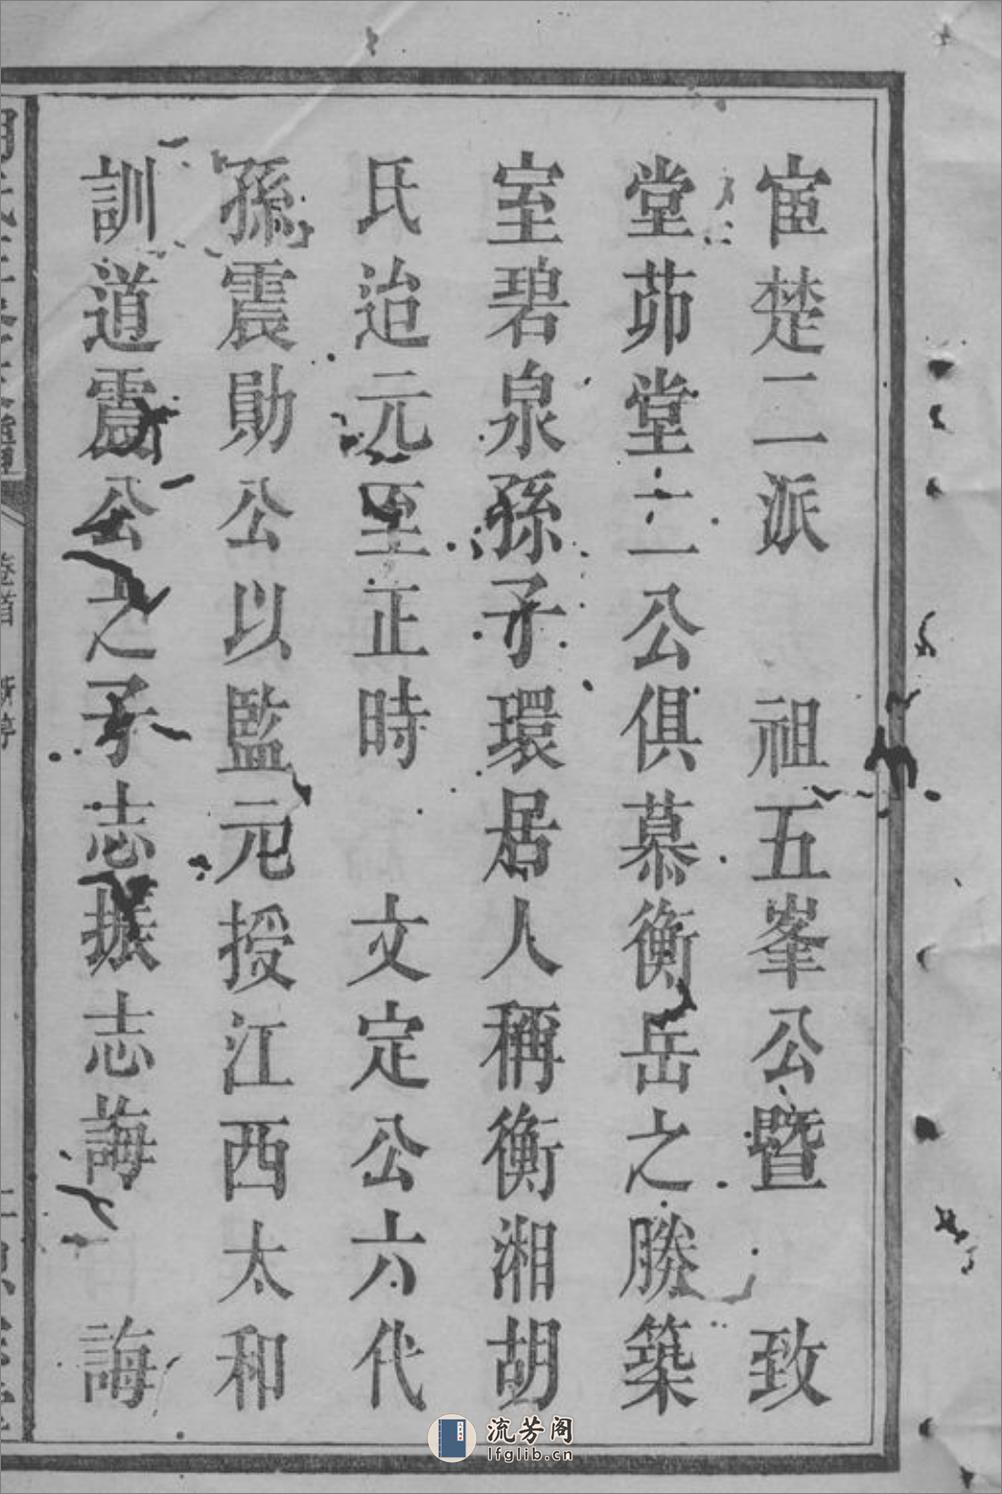 宦楚二派　祖五峯公暨　致
堂茆堂二公俱慕衡岳之勝築
室碧泉孫子環居人稱衡湘胡
氏迨元至正時　文定公六代
孫震勛公以監元授江西太和
訓道震公之子志振志誨　誨
卷首
流芳阁
lfglib.cn